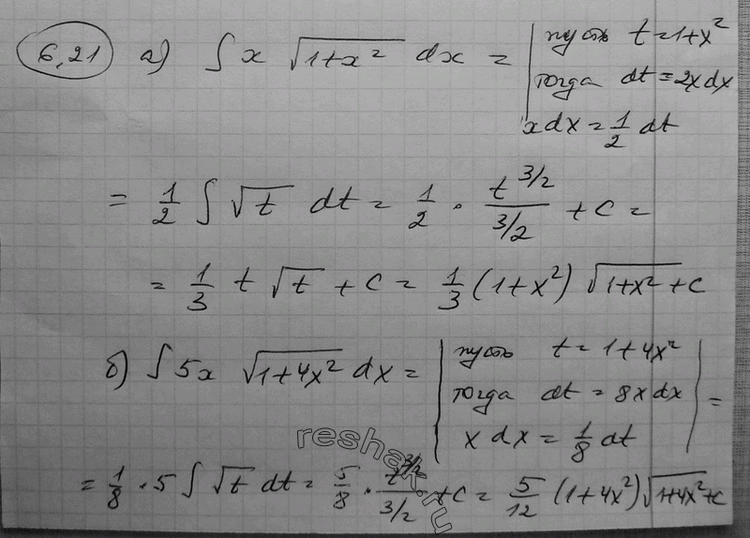 6,21 а) ∫ x √(1+x²) dx = | пусть t=1+x²
тогда dt=2xdx
xdx = 1/2 dt
= 1/2 ∫ √t dt = 1/2 · t^(3/2) / (3/2) + c =
= 1/3 t √t + c = 1/3 (1+x²) √(1+x²) + c
б) ∫ 5x √(1+4x²) dx = | пусть t = 1+4x²
тогда dt = 8x dx | =
x dx = 1/8 dt
= 1/8 · 5 ∫ √t dt = 5/8 · t^(3/2) / (3/2) + c = 5/12 (1+4x²) √(1+4x²) + c
reshak.ru